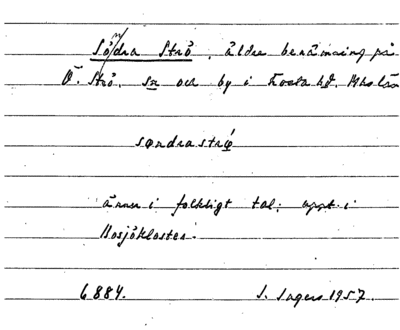 Södra Strö, äldre benämning på
Ö. Strö, sn och by i Frosta hd. Mhs län
søndrastrǿ
ännu i folkligt tal; uppt. i
Bosjökloster.
6884. I. Ingers 1957.